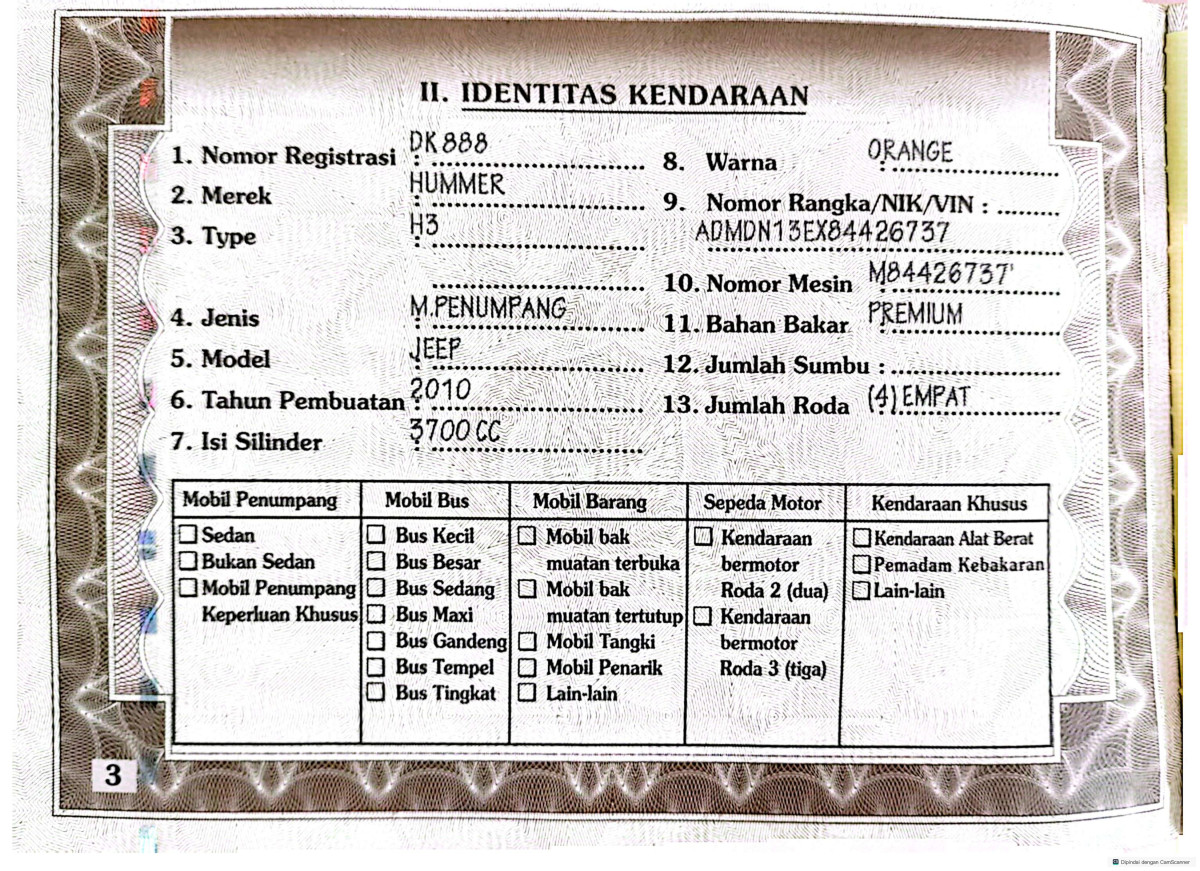 II. IDENTITAS KENDARAAN
1. Nomor Registrasi : DK 888
2. Merek : HUMMER
3. Type : H3
4. Jenis : M.PENUMPANG
5. Model : JEEP
6. Tahun Pembuatan : 2010
7. Isi Silinder : 3700 CC
8. Warna : ORANGE
9. Nomor Rangka/NIK/VIN : ........
ADMDN13EX84426737
10. Nomor Mesin M84426737
11. Bahan Bakar : PREMIUM
12. Jumlah Sumbu : ........
13. Jumlah Roda : (4) EMPAT
Mobil Penumpang
Sedan
Bukan Sedan
Mobil Penumpang
Keperluan Khusus
Mobil Bus
Bus Kecil
Bus Besar
Bus Sedang
Bus Maxi
Bus Gandeng
Bus Tempel
Bus Tingkat
Mobil Barang
Mobil bak
muatan terbuka
Mobil bak
muatan tertutup
Mobil Tangki
Mobil Penarik
Lain-lain
Sepeda Motor
Kendaraan
bermotor
Roda 2 (dua)
Kendaraan
bermotor
Roda 3 (tiga)
Kendaraan Khusus
Kendaraan Alat Berat
Pemadam Kebakaran
Lain-lain
3
Dipindai dengan CamScanner